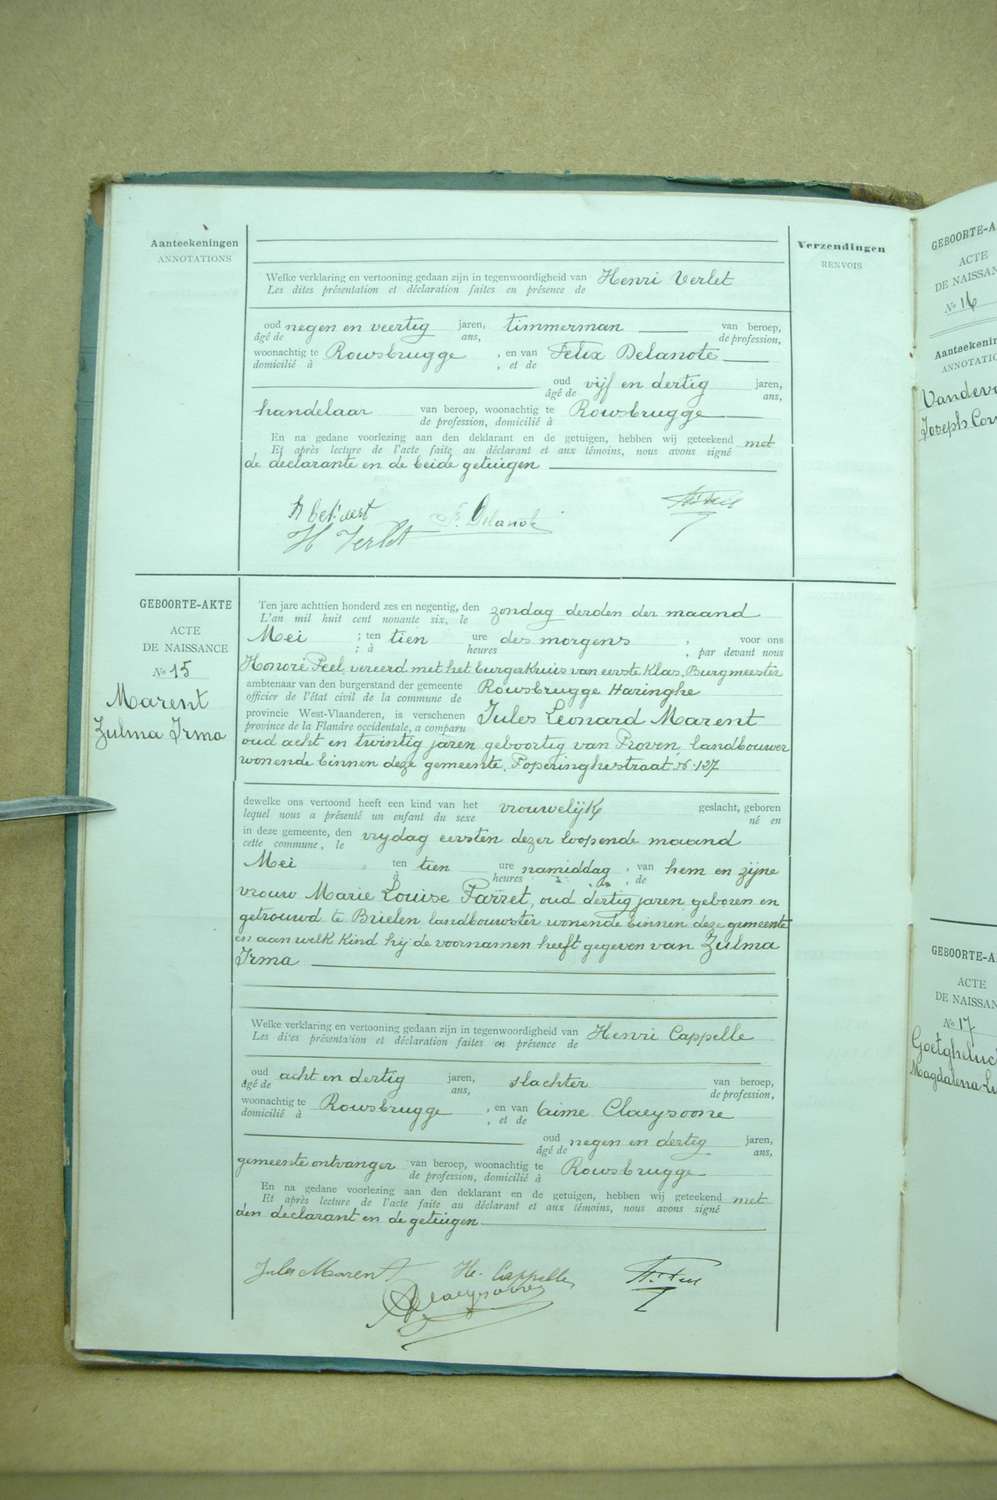 Aanteekeningen
ANNOTATIONS
Verzendingen
RENVOIS
Welke verklaring en vertooning gedaan zijn in tegenwoordigheid van Henri Verlet
Les dites présentation et déclaration faites en présence de
oud negen en veertig jaren, timmerman van beroep,
âgé de ans, de profession,
woonachtig te Rousbrugge , en van Felix Delanote
domicilié à , et de
oud vijf en dertig jaren,
âgé de ans,
handelaar van beroep, woonachtig te Rousbrugge
de profession, domicilié à
En na gedane voorlezing aan den deklarant en de getuigen, hebben wij geteekend met
Et après lecture de l'acte faite au déclarant et aux témoins, nous avons signé
de declarante en de beide getuigen
F. Delanote
H Verlet
GEBOORTE-AKTE
ACTE
DE NAISSANCE
No 15
Marent
Zulma Irma
Ten jare achttien honderd zes en negentig, den zondag derden der maand
L'an mil huit cent nonante six, le
Mei ; ten tien ure des morgens , voor ons
; à heures , par devant nous
Honoré Peel, vereerd met het burgerkruis van eerste klas, Burgmeester
ambtenaar van den burgerstand der gemeente Rousbrugge Haringhe
officier de l'état civil de la commune de
provincie West-Vlaanderen, is verschenen Jules Leonard Marent
province de la Flandre occidentale, a comparu
oud acht en twintig jaren, geboortig van Proven, landbouwer
wonende binnen deze gemeente, Poperinghestraat No 137
dewelke ons vertoond heeft een kind van het vrouwelijk geslacht, geboren
lequel nous a présenté un enfant du sexe né en
in deze gemeente, den vrijdag eersten dezer loopende maand
cette commune, le
Mei ten tien ure namiddag , van hem en zijne
à heures , de
vrouw Marie Louise Farret, oud dertig jaren, geboren en
getrouwd te Brielen, landbouwster wonende binnen deze gemeente
en aan welk kind hij de voornamen heeft gegeven van Zulma
Irma
Welke verklaring en vertooning gedaan zijn in tegenwoordigheid van Henri Cappelle
Les dites présentation et déclaration faites en présence de
oud acht en dertig jaren, slachter van beroep,
âgé de ans, de profession,
woonachtig te Rousbrugge , en van Aime Claeysoone
domicilié à , et de
oud negen en dertig jaren,
âgé de ans,
gemeente ontvanger van beroep, woonachtig te Rousbrugge
de profession, domicilié à
En na gedane voorlezing aan den deklarant en de getuigen, hebben wij geteekend met
Et après lecture de l'acte faite au déclarant et aux témoins, nous avons signé
den declarant en de getuigen
Jules Marent He. Cappelle
A Claeysoone
GEBOORTE-A
ACTE
DE NAISSAN
No 16
Aanteekenin
ANNOTATIO
Joseph Cor
GEBOORTE-A
ACTE
DE NAISSAN
No 17
Magdalena Le